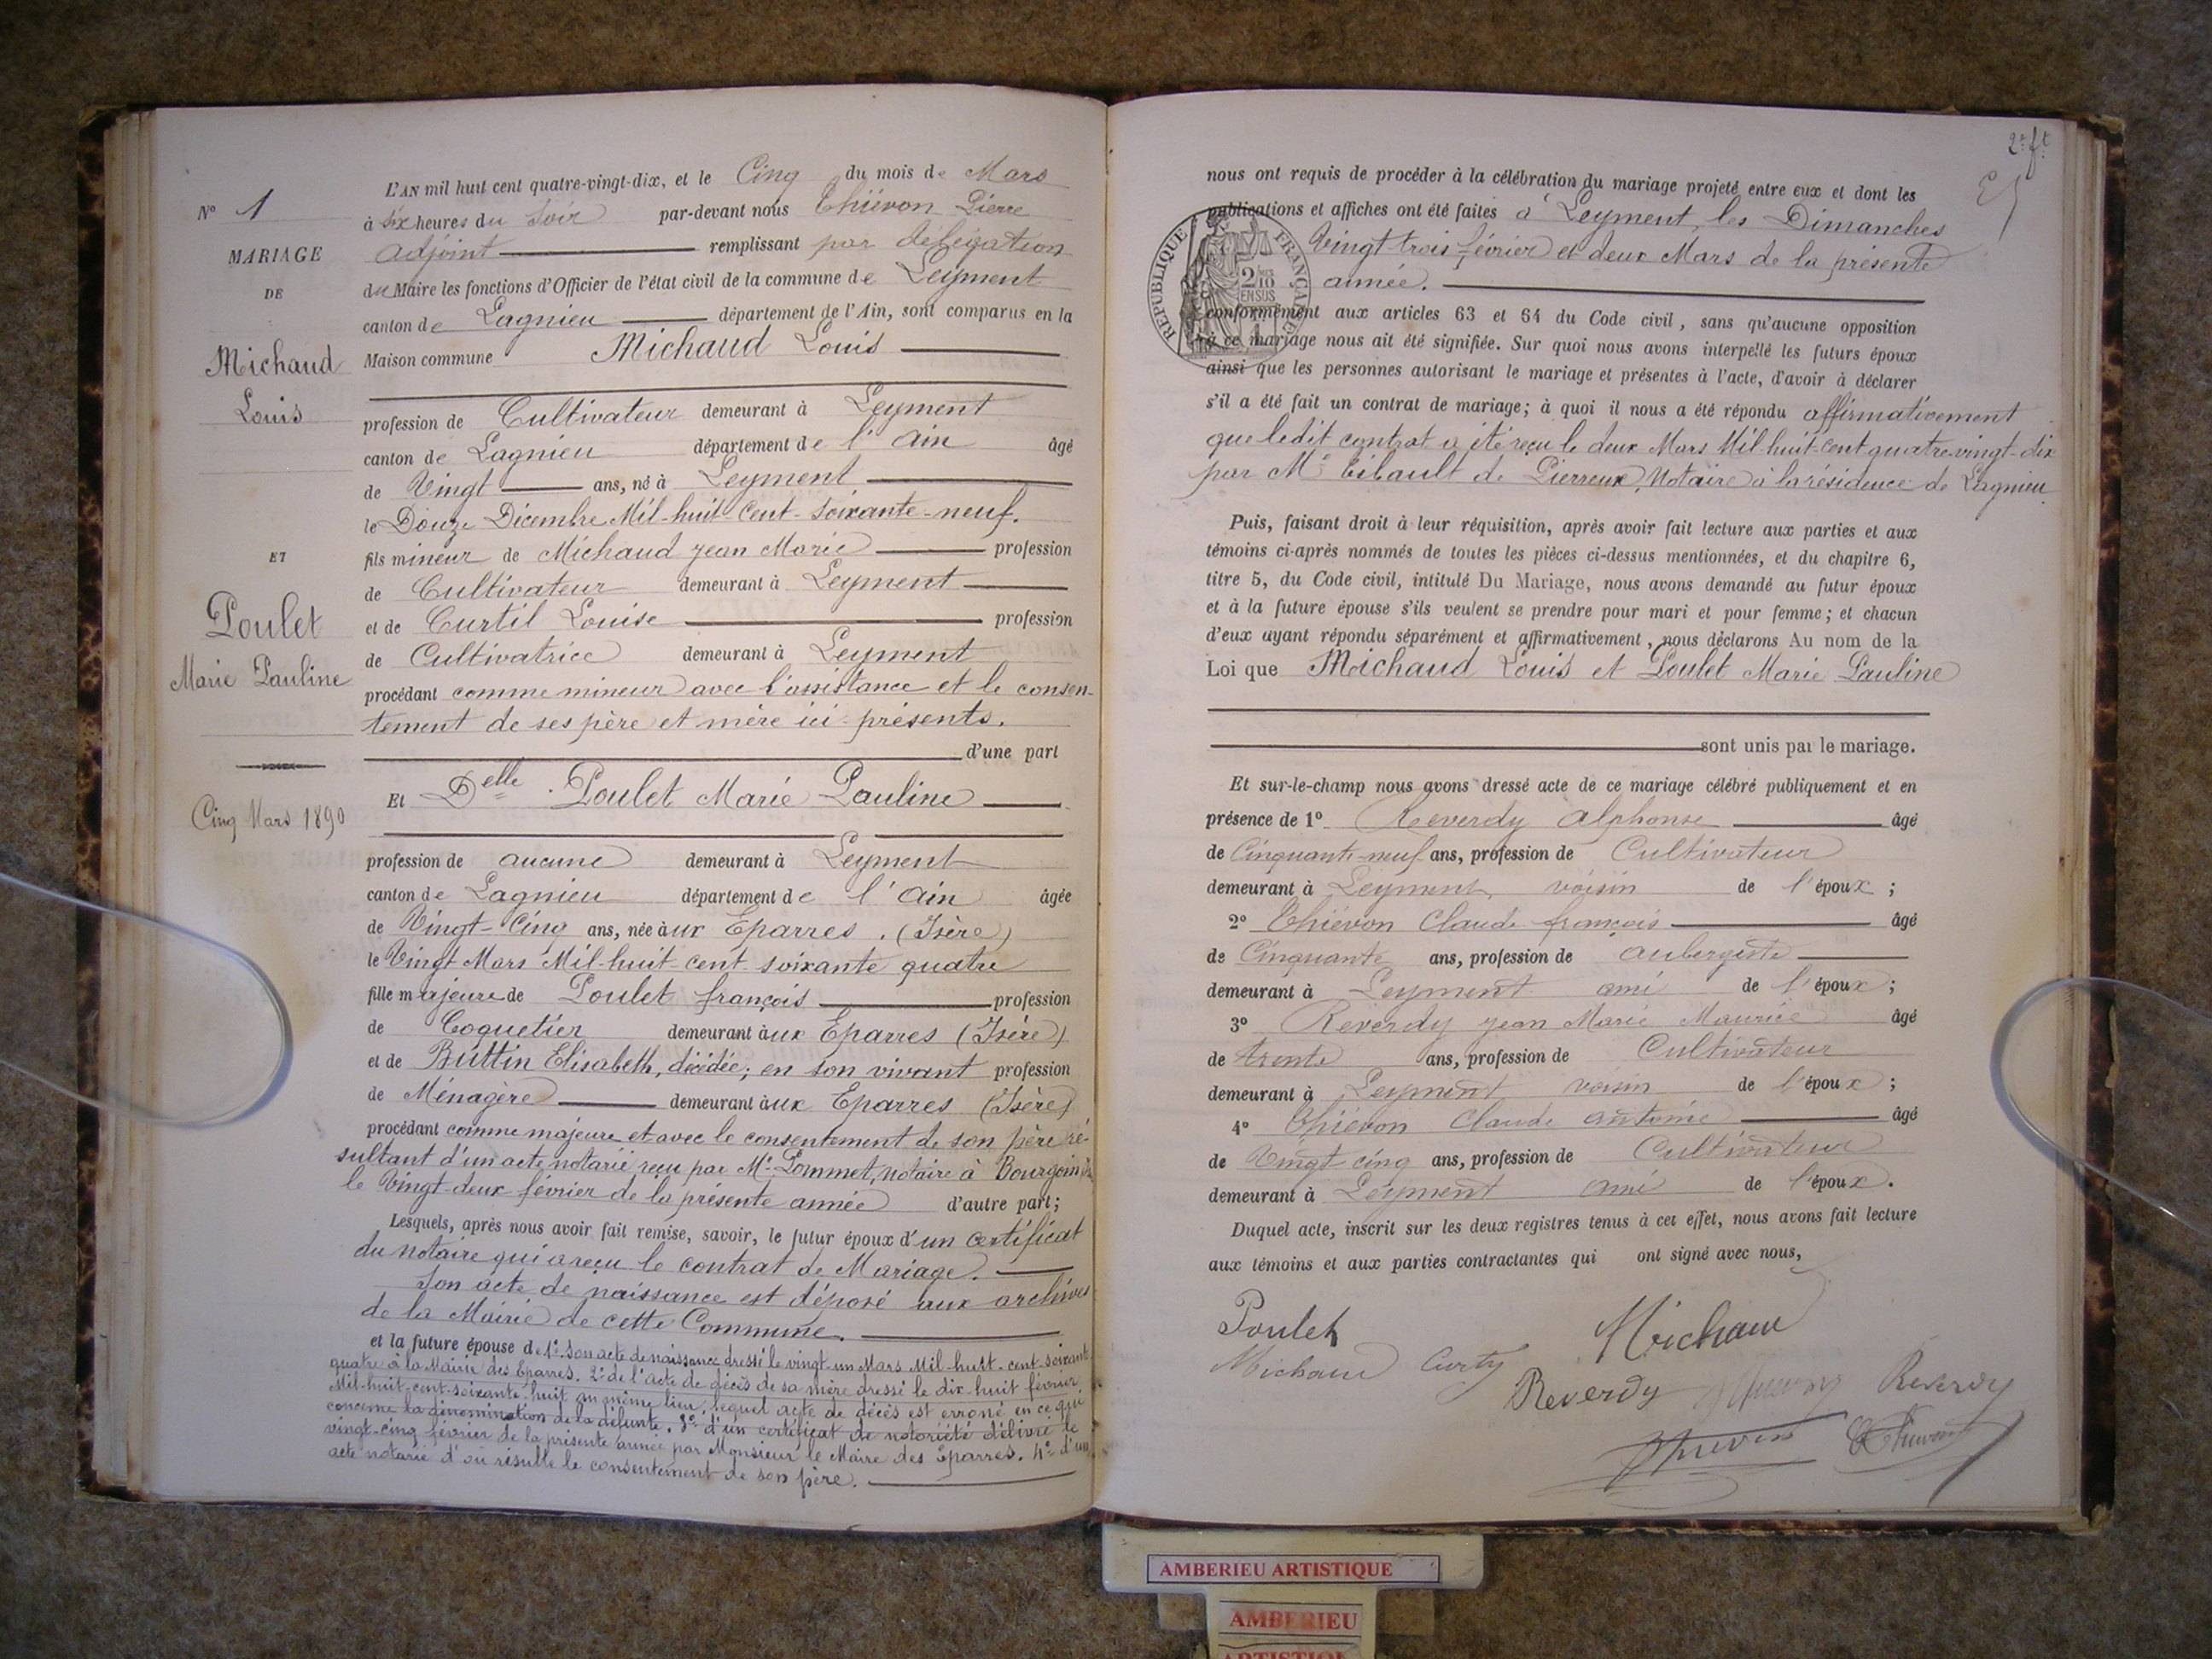 N° 1
MARIAGE
DE
Michaud
Louis
ET
Poulet
Marie Pauline
Cinq Mars 1890
L'AN mil huit cent quatre-vingt-dix, et le Cinq du mois de Mars
à six heures du Soir par-devant nous Thiévon Pierre
adjoint remplissant par délégation
du Maire les fonctions d'Officier de l'état civil de la commune de Leyment
canton de Lagnieu département de l'Ain, sont comparus en la
Maison commune Michaud Louis
profession de Cultivateur demeurant à Leyment
canton de Lagnieu département de l'Ain âgé
de Vingt ans, né à Leyment
le Douze Décembre Mil-huit-Cent-soixante-neuf.
fils mineur de Michaud jean Marie profession
de Cultivateur demeurant à Leyment
et de Curtil Louise profession
de Cultivatrice demeurant à Leyment
procédant comme mineur avec l'assistance et le consen-
tement de ses père et mère ici présents.
d'une part
Et Delle Poulet Marie Pauline
profession de aucune demeurant à Leyment
canton de Lagnieu département de l'Ain âgée
de Vingt-Cinq ans, née aux Eparres. (Isère)
le Vingt Mars Mil-huit-cent-soixante quatre
fille majeure de Poulet françois profession
de Coquetier demeurant aux Eparres (Isère)
et de Buttin Elisabeth, décédée; en son vivant profession
de Ménagère demeurant aux Eparres (Isère)
procédant comme majeure et avec le consentement de son père ré-
sultant d'un acte notarié reçu par Me Pommet, notaire à Bourgoin
le Vingt-deux février de la présente année d'autre part;
Lesquels, après nous avoir fait remise, savoir, le futur époux d'un certificat
du notaire qui a reçu le contrat de Mariage.
Son acte de naissance est déposé aux archives
de la Mairie de cette Commune.
et la future épouse de 1° Son acte de naissance dressé le vingt-un Mars Mil-huit-cent-soixante
quatre à la Mairie des Eparres. 2° de l'acte de décès de sa mère dressé le dix huit février
Mil-huit-cent-soixante-huit au même lieu, lequel acte de décès est erroné en ce qui
concerne la dénomination de la défunte. 3° d'un certificat de notoriété délivré le
vingt-cinq février de la présente année par Monsieur le Maire des Eparres. 4° d'un
acte notarié d'où résulte le consentement de son père.
nous ont requis de procéder à la célébration du mariage projeté entre eux et dont les
publications et affiches ont été faites à Leyment, les Dimanches
Vingt trois février et deux Mars de la présente
année.
RÉPUBLIQUE FRANÇAISE
2/10 EN SUS
conformément aux articles 63 et 64 du Code civil, sans qu'aucune opposition
à ce mariage nous ait été signifiée. Sur quoi nous avons interpellé les futurs époux
ainsi que les personnes autorisant le mariage et présentes à l'acte, d'avoir à déclarer
s'il a été fait un contrat de mariage; à quoi il nous a été répondu affirmativement
que ledit contrat a été reçu le deux Mars Mil-huit-cent quatre-vingt-dix
par Me de Pierreux, Notaire à la résidence de Lagnieu
Puis, faisant droit à leur réquisition, après avoir fait lecture aux parties et aux
témoins ci-après nommés de toutes les pièces ci-dessus mentionnées, et du chapitre 6,
titre 5, du Code civil, intitulé Du Mariage, nous avons demandé au futur époux
et à la future épouse s'ils veulent se prendre pour mari et pour femme; et chacun
d'eux ayant répondu séparément et affirmativement, nous déclarons Au nom de la
Loi que Michaud Louis et Poulet Marie Pauline
sont unis par le mariage.
Et sur-le-champ nous avons dressé acte de ce mariage célébré publiquement et en
présence de 1° Reverdy Alphonse âgé
de Cinquante-neuf ans, profession de Cultivateur
demeurant à Leyment, voisin de l'époux;
2° Thiévon Claude françois âgé
de Cinquante ans, profession de aubergiste
demeurant à Leyment ami de l'époux;
3° Reverdy jean Marie Maurice âgé
de trente ans, profession de Cultivateur
demeurant à Leyment voisin de l'époux;
4° Thiévon Claude antoine âgé
de Vingt-cinq ans, profession de Cultivateur
demeurant à Leyment ami de l'époux.
Duquel acte, inscrit sur les deux registres tenus à cet effet, nous avons fait lecture
aux témoins et aux parties contractantes qui ont signé avec nous,
Poulet Michaud
Michaud
Reverdy Reverdy
AMBERIEU ARTISTIQUE
AMBERIEU
ARTISTIQUE